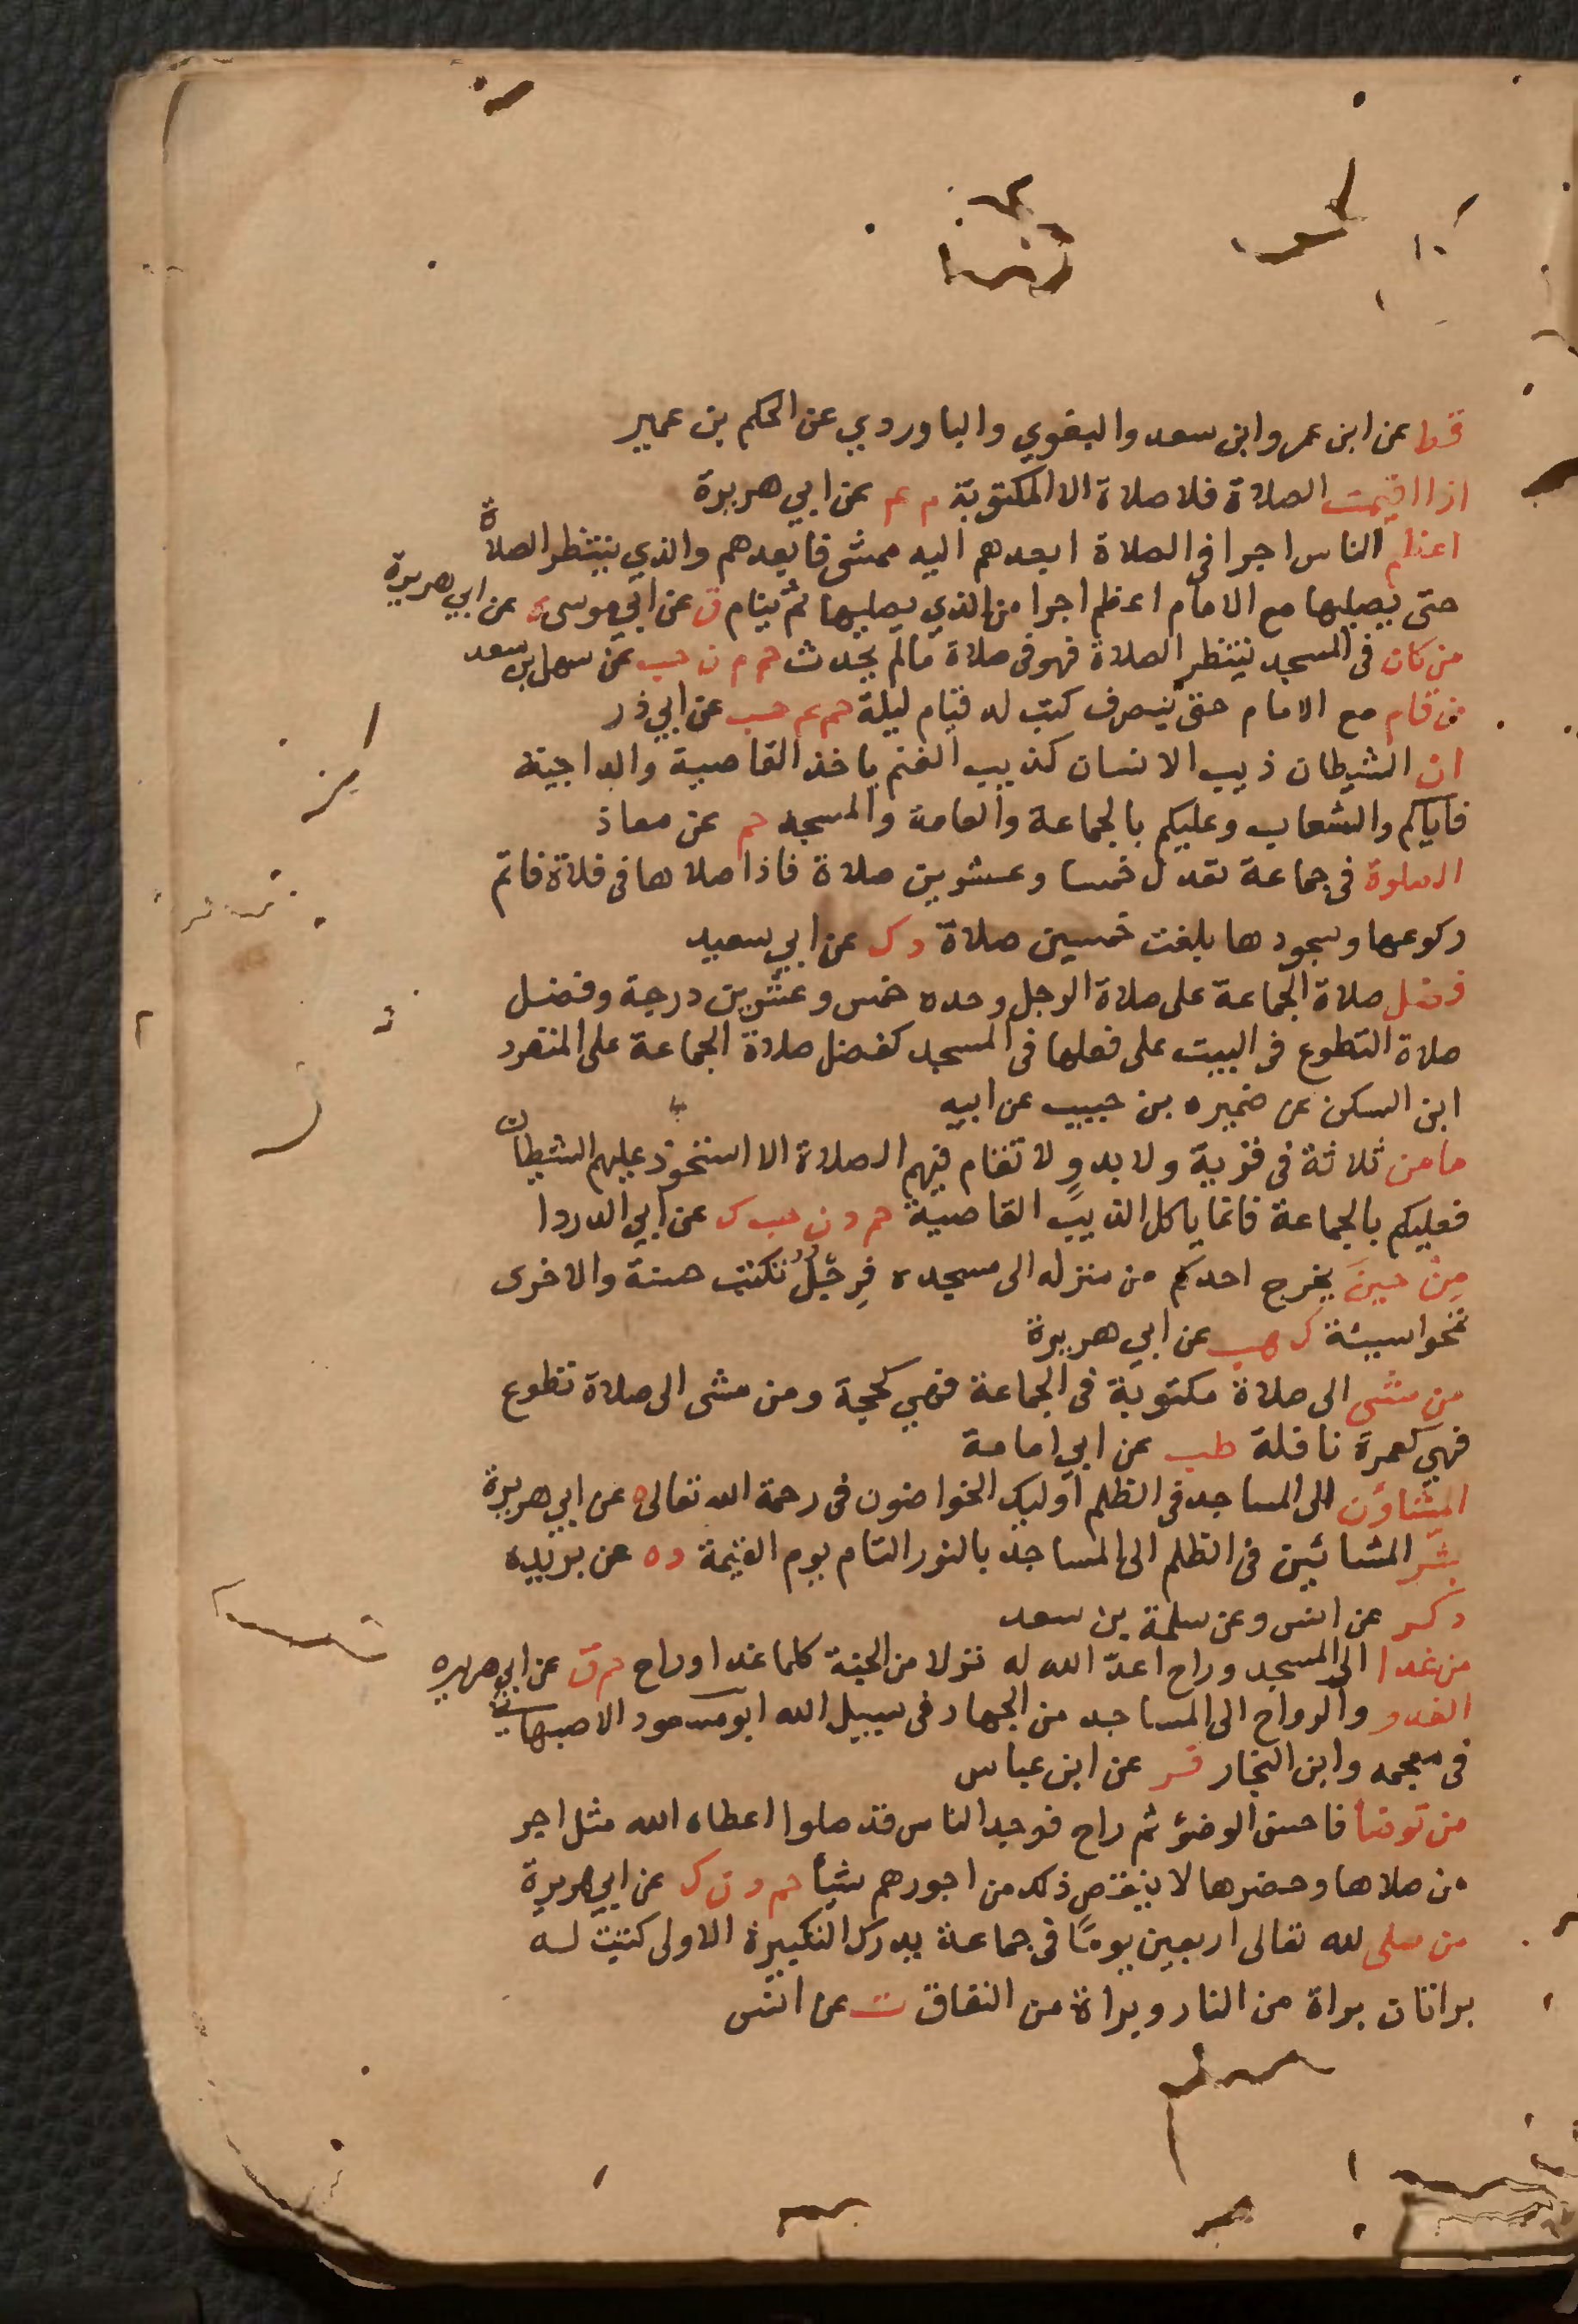 قط عن ابن عمر وابن سعد والبغوي والباوردي عن الحكم بن عمير
اذا اقيمت الصلاة فلا صلاة الا المكتوبة م عم عن ابي هريرة
اعظم الناس اجرا في الصلاة ابعدهم اليه ممشى فابعدهم والذي ينتظر الصلاة
حتى يصليها مع الامام اعظم اجرا من الذي يصليها ثم ينام ق عن ابي موسى ه عن ابي هريرة
من كان في المسجد ينتظر الصلاة فهو في صلاة مالم يحدث حم ن حب عن سهل بن سعد
من قام مع الامام حتى ينصرف كتب له قيام ليلة حم عم حب عن ابي ذر
ان الشيطان ذيب الانسان كذيب الغنم ياخذ القاصية والداجية
فاياكم والشعاب وعليكم بالجماعة والعامة والمسجد حم عن معاذ
الصلوة في جماعة تعدل خمسا وعشرين صلاة فاذا صلاها في فلاة فاتم
ركوعها وسجودها بلغت خمسين صلاة د ك عن ابي سعيد
فضل صلاة الجماعة على صلاة الرجل وحده خمس وعشرين درجة وفضل
صلاة التطوع في البيت على فعلها في المسجد كفضل صلاة الجماعة على المنفرد
ابن السكن عن ضميره بن حبيب عن ابيه
ما من ثلاثة في قرية ولا بدو لا تقام فيهم الصلاة الا استحوذ عليهم الشيطان
فعليكم بالجماعة فانما ياكل الذيب القاصية حم د ن حب ك عن ابي الدردا
من حين يخرج احدكم من منزله الى مسجده فرجل تكتب حسنة والاخرى
تمحوا سيئة ك هب عن ابي هريرة
من مشى الى صلاة مكتوبة في الجماعة فهي كحجة ومن مشى الى صلاة تطوع
فهي كعمرة نافلة طب عن ابي امامة
المشاؤن الى المساجد في الظلم اوليك الخواضون في رحمة الله تعالى ه عن ابي هريرة
بشر المشائين في الظلم الى المساجد بالنور التام يوم القيمة د ه عن بريده
د ك عن انس وعن سلمة بن سعد
من غدا الى المسجد وراح اعد الله له نزلا من الجنة كلما غدا او راح حم ق عن ابي هريره
الغدو والرواح الى المساجد من الجهاد في سبيل الله ابو مسعود الاصبهاني
في معجمه وابن النجار فر عن ابن عباس
من توضأ فاحسن الوضؤ ثم راح فوجد الناس قد صلوا اعطاه الله مثل اجر
من صلاها وحضرها لا ينقص ذلك من اجورهم شيأ حم د ن ك عن ابي هريرة
من صلى لله تعالى اربعين يوما في جماعة يدرك التكبيرة الاولى كتبت له
براتان براة من النار وبراة من النفاق ت عن انس